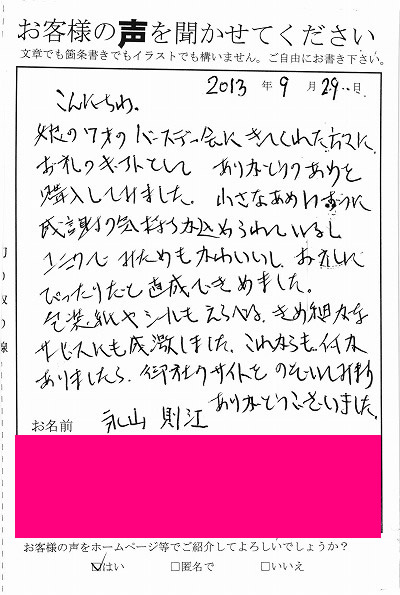 お客様の声を聞かせてください
文章でも箇条書きでもイラストでも構いません。ご自由にお書き下さい。
2013 年 9 月 29 日
こんにちわ。
娘の7才のバースデー会にきてくれた方々に
お礼のギフトとして ありがとうのあめを
購入してみました。 小さなあめ1つ1つに
感謝の気持ちが込められているし
ユニークで みためもかわいいし、お礼に
ぴったりだと直感できめました。
包装紙やシールもえらべる、きめ細かな
サービスにも感激しました。これからも、イベントが
ありましたら、御社のサイトを のぞいてみます
ありがとうございました。
お名前 永山 則江
お客様の声をホームページ等でご紹介してよろしいでしょうか？
☑はい □匿名で □いいえ